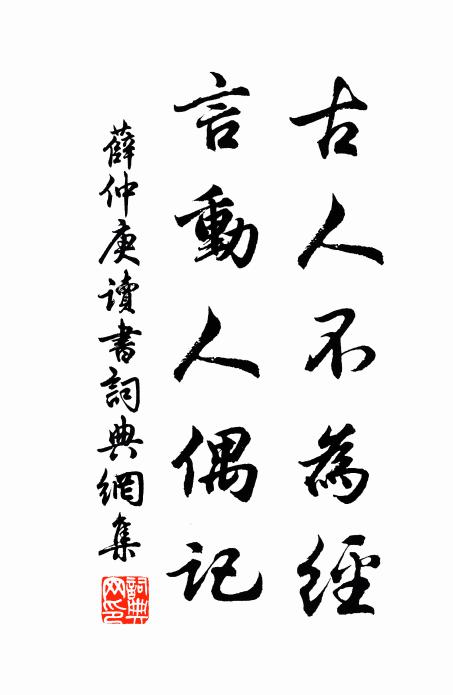 古人不為經
言動人偶記
薛仲庚讀書詞典網集
詞典網印